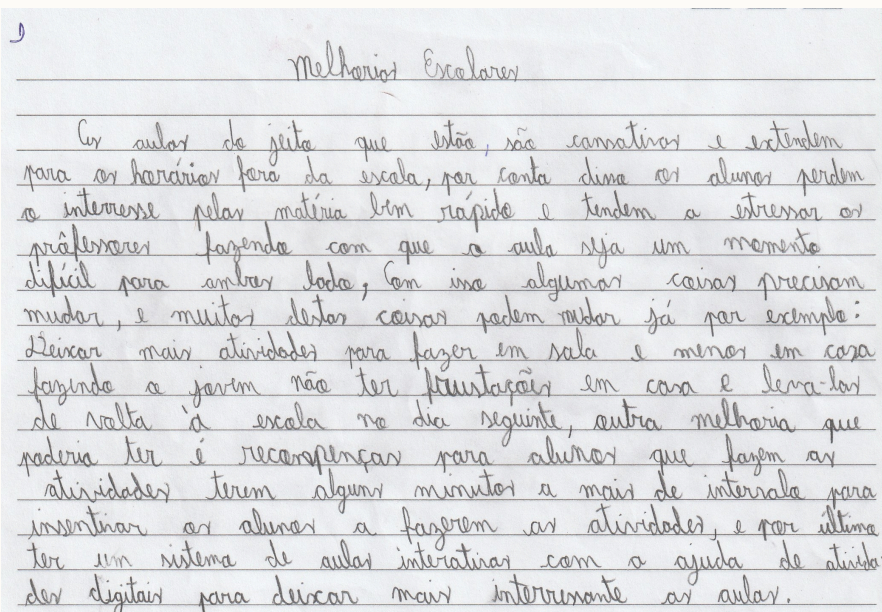 Melhorias Escolares
As aulas do jeito que estão, são cansativas e extendem
para os horários fora da escola, por conta disso os alunos perdem
o interresse pelas matéria bem rápido e tendem a estressar os
prôfessores fazendo com que a aula seja um momento
difícil para ambos lado, Com isso algumas coisas precisam
mudar, e muitas destas coisas podem mudar já por exemplo:
Deixar mais atividades para fazer em sala e menos em casa
fazendo o jovem não ter frustações em casa e leva-las
de volta à escola no dia seguinte, outra melhoria que
poderia ter é recompenças para alunos que fazem as
atividades terem alguns minutos a mais de intervalo para
insentivar os alunos a fazerem as atividades, e por último
ter um sistema de aulas interativas com a ajuda de ativida
des digitais para deixar mais interrusante as aulas.